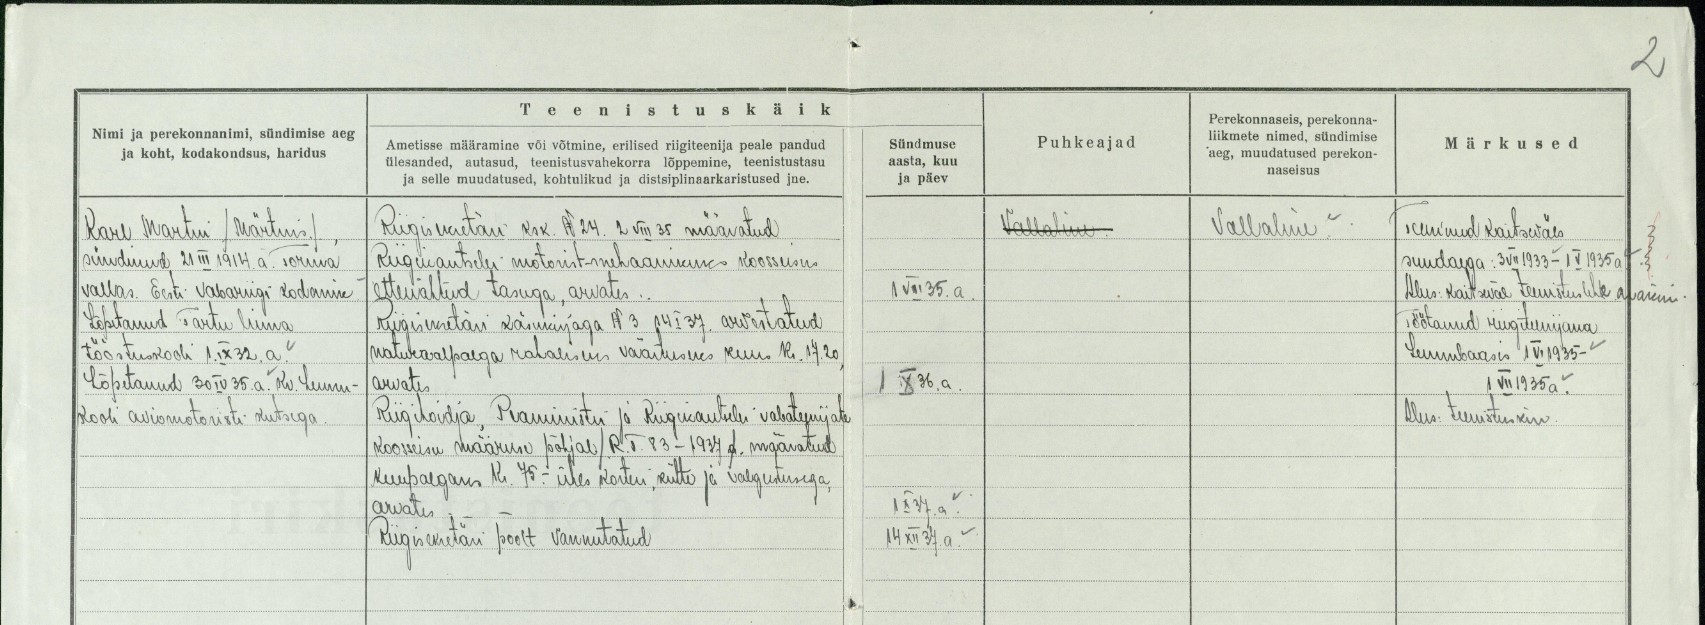 2
Teenistuskäik
Nimi ja perekonnanimi, sündimise aeg
ja koht, kodakondsus, haridus
Ametisse määramine või võtmine, erilised riigiteenija peale pandud
ülesanded, autasud, teenistusvahekorra lõppemine, teenistustasu
ja selle muudatused, kohtulikud ja distsiplinaarkaristused jne.
Sündmuse
aasta, kuu
ja päev
Puhkeajad
Perekonnaseis, perekonna-
liikmete nimed, sündimise
aeg, muudatused perekon-
naseisus
Märkused
Karl Martin /Märtins/,
sündinud 21 III 1914. a. Toriva
vallas. Eesti Vabariigi kodanik
Lõpetanud Tartu linna
tööstuskooli 1. IX 32. a.
Lõpetanud 30 IV 35. a. Kv. Lennu-
kooli aviomotoristi kutsega.
Riigisekretäri ksk. № 24. 2 VIII 35 määratud
Riigikantselei motorist-mehaanikuks koosseisus
ettenähtud tasuga, arvates..
Riigisekretäri käskkirjaga № 3 14 I 37. arvestatud
naturaalpalga rahalisus väärtuseks kuus Kr. 17.20,
arvates
Riigihoidja, Peaministri ja Riigikantselei vabateenijate
koosseisu määruse põhjal /R.T. 83 - 1937/. määratud
kuupalgaks Kr. 75.- ühes korteri, kütte ja valgustusega,
arvates
Riigisekretäri poolt vannutatud
1 VIII 35. a.
1 IX 36. a.
1 X 37. a.
14 XII 37. a.
Vallaline.
Vallaline
Teeninud kaitseväes
sundaega: 3 VII 1933 - 1 V 1935 a
Alus: kaitseväe teenistusleht
Töötanud riigiteenijana
Lennubaasis 1 VI 1935 -
1 VII 1935 a.
Alus: teenistuskiri.